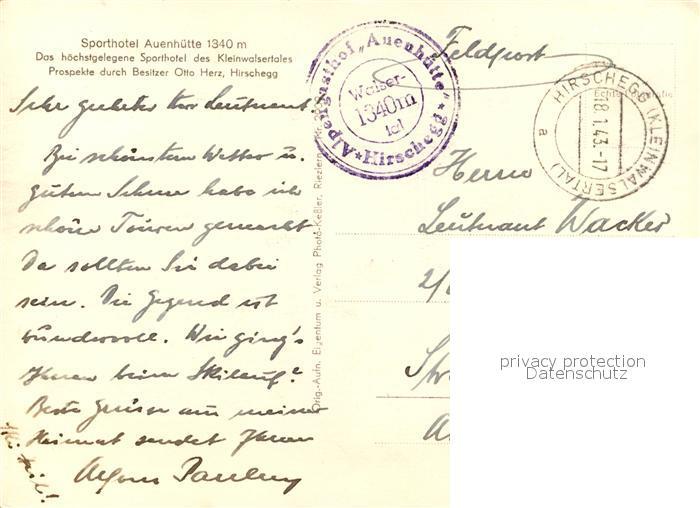 Sporthotel Auenhütte 1340 m
Das höchstgelegene Sporthotel des Kleinwalsertales
Prospekte durch Besitzer Otto Herz, Hirschegg
Sehr geehrter Herr Leutnant
Bei schönstem Wetter u.
gutem Schnee habe ich
schöne Touren gemacht
Da sollten Sie dabei
sein. Die Gegend ist
wundervoll. Wie ging's
Ihnen beim Skilauf?
Beste Grüsse aus meiner
Heimat sendet Ihnen
Alfons
Orig.-Aufn. Eigentum u. Verlag Photo-Keßler, Riezlern
Alpengasthof „Auenhütte"
Walser-
1340m
tal
Hirschegg
Feldpost
HIRSCHEGG (KLEINWALSERTAL)
18.1.43.-17
a
Echte
Herrn
Leutnant Wacker
2/
privacy protection
Datenschutz